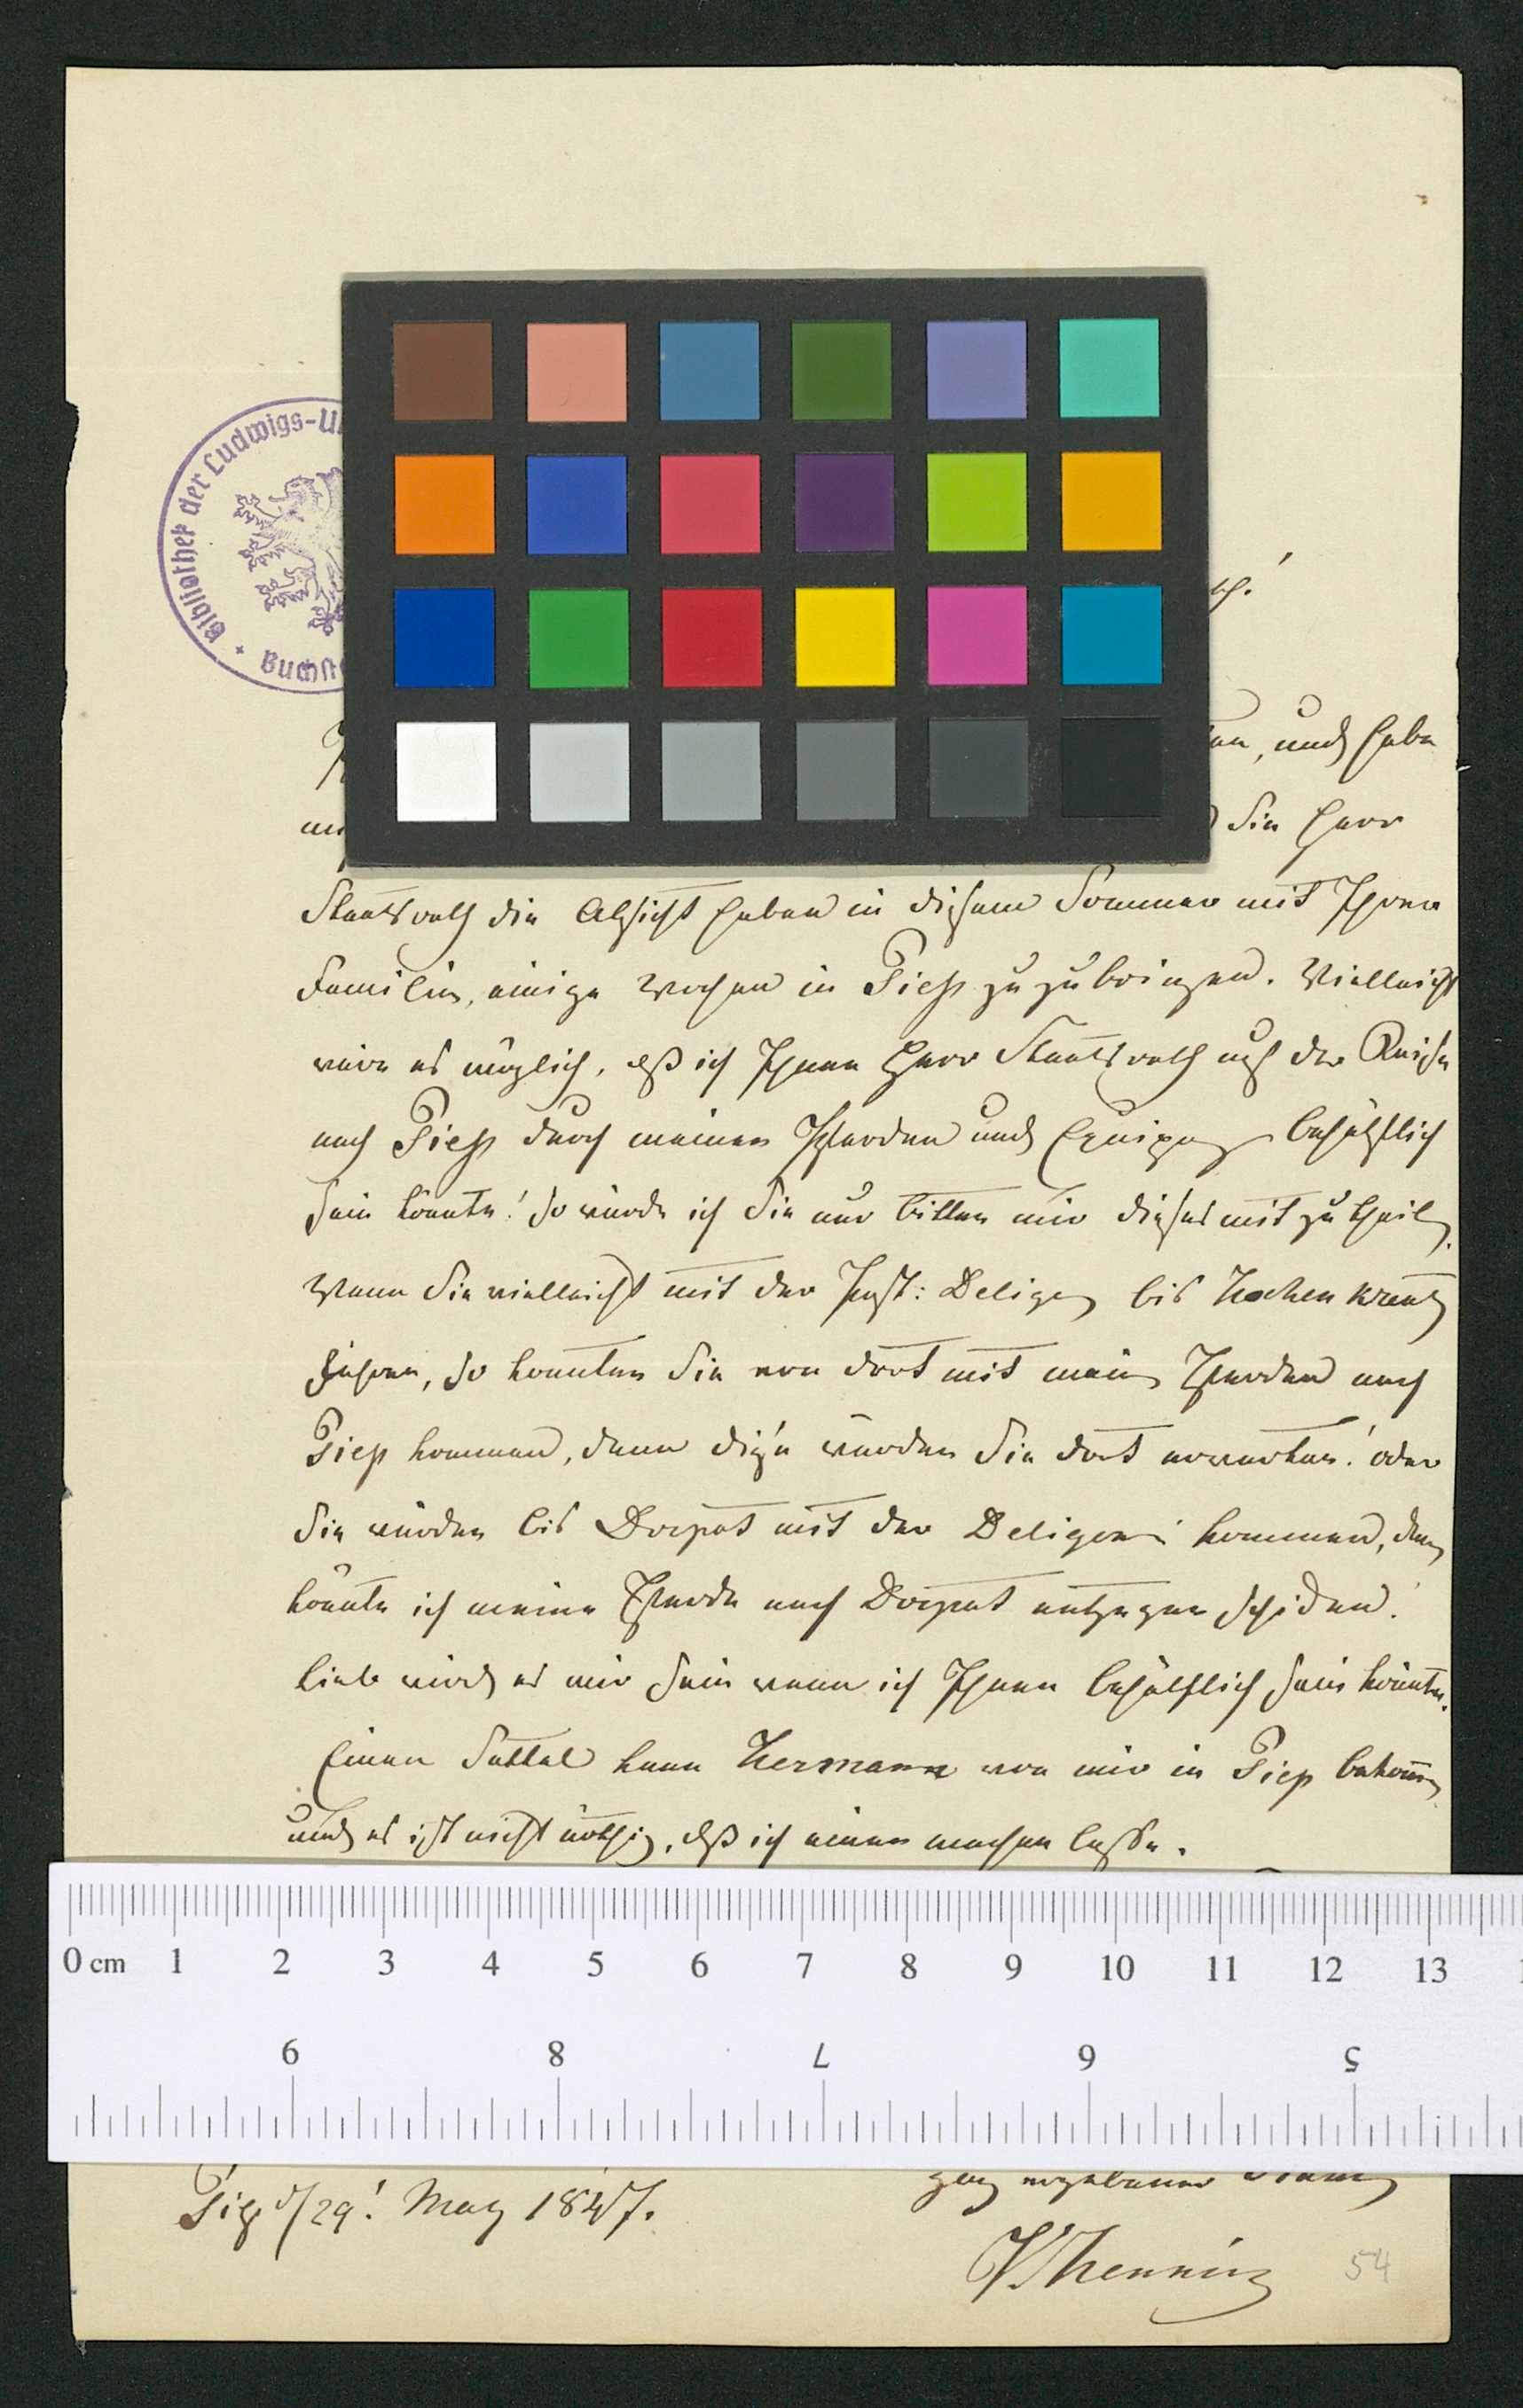 Bibliothek der Ludwigs-U
und habe
Sie Herr
Staatsrath die Absicht haben in diesem Sommer mit Ihrer
Familie, einige Wochen in Piep zuzubringen. Vielleicht
wäre es möglich, daß ich Ihnen Herr Staatsrath auf der Reise
nach Piep durch meinen Pferden und Equipage behülflich
sein könnte! so würde ich Sie nur bitten mir dieses mit zu theilen.
Wenn Sie vielleicht mit der Post: Deligen bis Hohenkreutz
führen, so konnten Sie von dort mit meinen Pferden nach
Piep kommen, denn diese würden Sie dort erwarten! oder
Sie würden bis Dorpat mit der Deligence kommen, dann
könnte ich meine Pferde nach Dorpat entgegen schicken!
Lieb wird es mir sein wenn ich Ihnen behülflich sein könnte.
Einen Sattel kann Hermann von mir in Piep bekommen
und es ist nicht nöthig, daß ich einen machen lasse.
0 cm 1 2 3 4 5 6 7 8 9 10 11 12 13
9 8 7 6 5
ganz ergebener
Piep d/29! May 1847.
VHenning
54